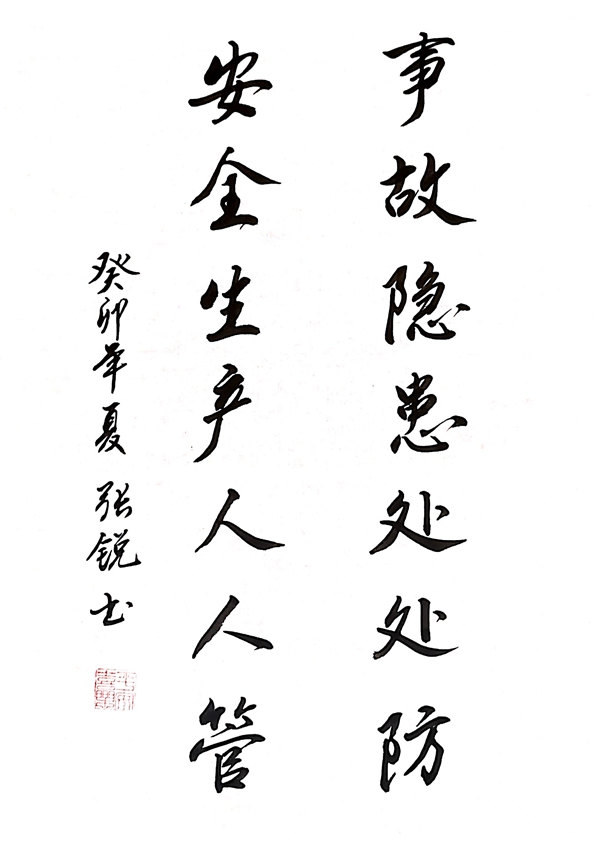 事故隐患处处防
安全生产人人管
癸卯年夏 张锐书